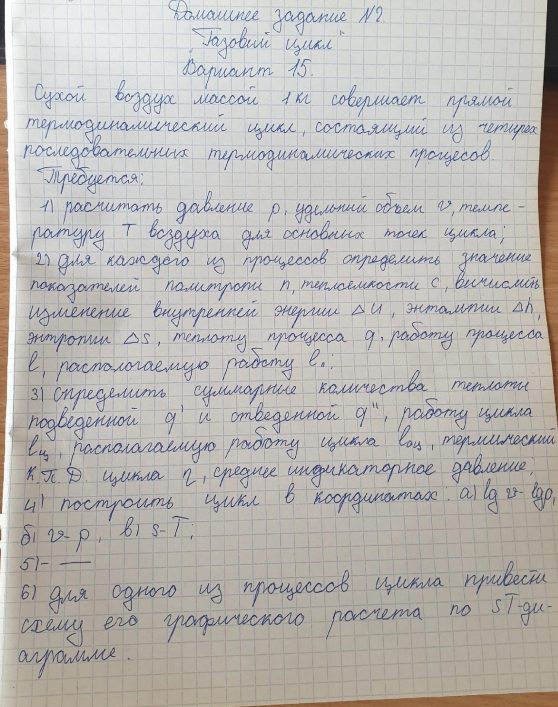 Домашнее задание №2.
"Газовый цикл"
Вариант 15.
Сухой воздух массой 1 кг совершает прямой
термодинамический цикл, состоящий из четырех
последовательных термодинамических процессов.
Требуется:
1) расчитать давление p, удельный объем v, темпе-
ратуру T воздуха для основных точек цикла;
2) для каждого из процессов определить значение
показателей политропы n, теплоемкости c, вычислить
изменение внутренней энергии Δu, энтальпии Δh,
энтропии Δs, теплоту процесса q, работу процесса
l, располагаемую работу l₀;
3) определить суммарные количества теплоты
подведенной q' и отведенной q", работу цикла
lц, располагаемую работу цикла l₀ц, термический
К.П.Д. цикла η, среднее индикаторное давление.
4) построить цикл в координатах: а) lg v - lg p,
б) v-p, в) s-T;
5) - —
6) для одного из процессов цикла привести
схему его графического расчета по sT-ди-
аграмме.